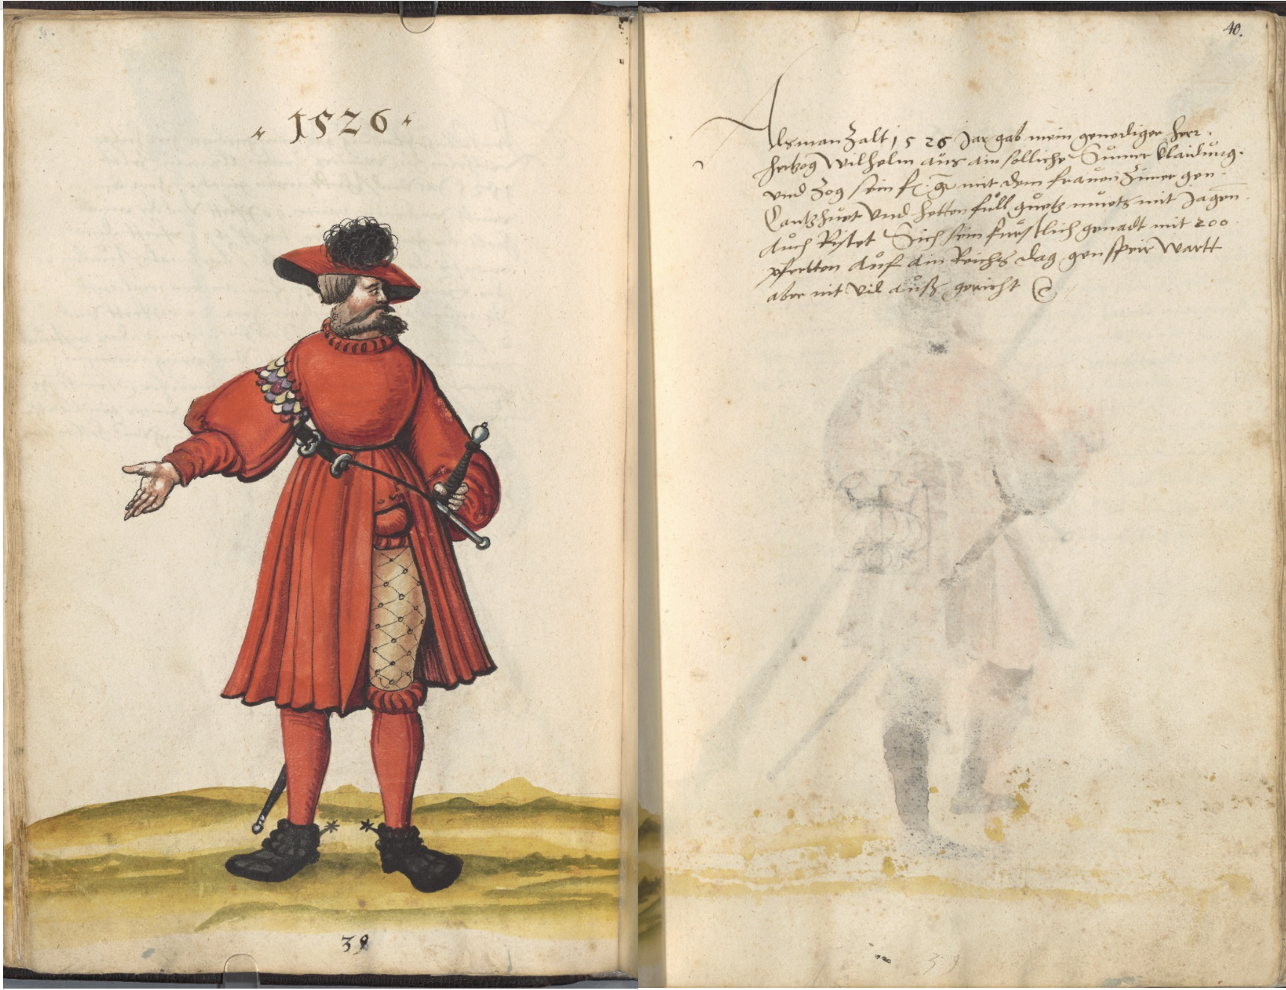 1526
39
40.
Als man Zalt 1526 Jar gab mein genediger herr.
herzog Wilhelm aus ain solliche Sumer Klaidung.
vnd Zog sein f. g. mit dem frauen Zimer gen.
Lantzhuet Vnd hetten füll guetz muetz mit Jagen.
Auch Ristet Sich sein furstlich genadt mit 200
pfertten Auf ain Reichs dag gen speir Wartt
aber nit Vil auß gericht